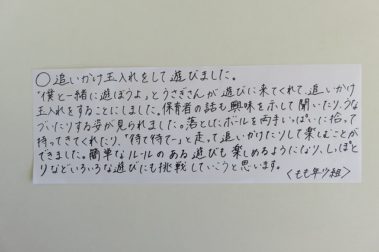 ○追いかけ玉入れをして遊びました。
“僕と一緒に遊ぼうよ”とうさぎさんが遊びに来てくれて、追いかけ
玉入れをすることにしました。保育者の話も興味を示して聞いたり、うな
づいたりする姿が見られました。落としたボールを両手いっぱいに拾って
持ってきてくれたり、“待て待て～”と走って追いかけたりして楽しむことが
できました。簡単なルールのある遊びも楽しめるようになり、しっぽと
りなどいろいろな遊びにも挑戦していこうと思います。
<もも年少組>